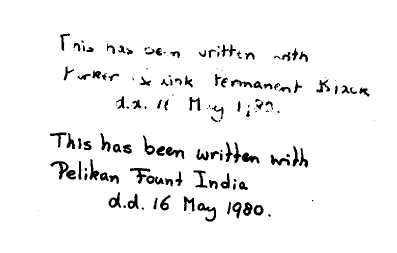 This has been written with
Parker ink Permanent Black
d.d. 16 May 1980.
This has been written with
Pelikan Fount India
d.d. 16 May 1980.